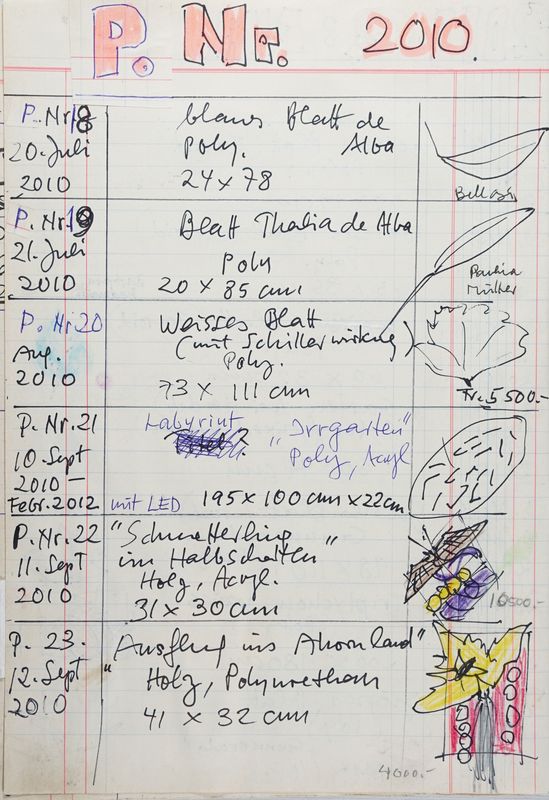 P. Nr. 2010.
P. Nr. 18
20. Juli
2010
blaues Blatt de
Poly. Alba
24 x 78
P. Nr. 19
21. Juli
2010
Blatt Thalia de Alba
Poly
20 x 85 cm
Paulina
Müller
P. Nr. 20
Aug.
2010
Weisses Blatt
(mit Schillerwirkung)
Poly.
73 x 111 cm
Fr. 5500.-
P. Nr. 21
10. Sept
2010 –
Febr. 2012
Labyrint
"Irrgarten"
Poly, Acryl
mit LED 195 x 100 cm x 22 cm
P. Nr. 22
11. Sept
2010
"Schmetterling
im Halbschatten"
Holz, Acryl.
31 x 30 cm
10500.-
P. 23.
12. Sept
2010
"Ausflug ins Ahornland"
Holz, Polyurethan
41 x 32 cm
4000.-